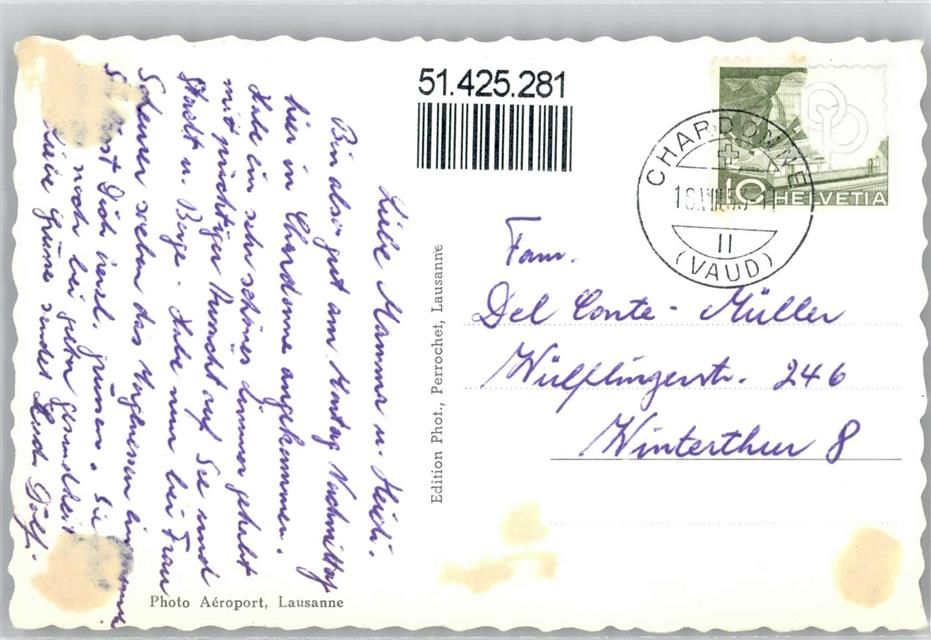 51.425.281
CHARDONNE
18.VIII.53-11
II
(VAUD)
10 HELVETIA
Fam.
Del Conte - Müller
Wülflingerstr. 246
Winterthur 8
Edition Phot., Perrochet, Lausanne
Liebe Mamma u. Heidi.
Bin also gut am Montag Nachmittag
hier in Chardonne angekommen.
Habe ein sehr schönes Zimmer gehabt
mit prächtiger Aussicht auf See und
Stadt u. Berge. Habe nun bei Frau
Schenner
das
ein
Dich
grüssen. Sie
noch bei guter Gesundheit
Liebe Grüsse sendet Euch Dölf.
Photo Aéroport, Lausanne